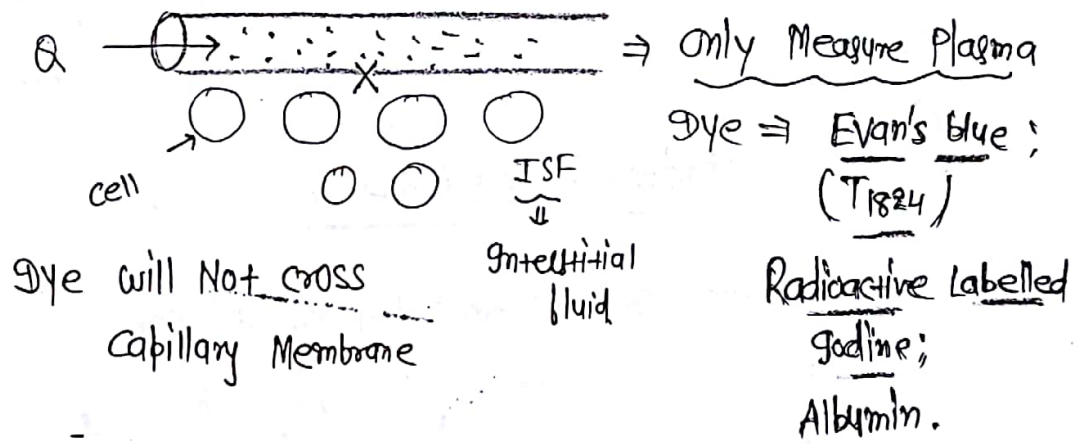 Q
⇒ Only Measure Plasma
Dye ⇒ Evan's blue;
(T1824)
cell
ISF
⇓
Interstitial
fluid
Dye will Not cross
Capillary Membrane
Radioactive Labelled
Iodine;
Albumin.